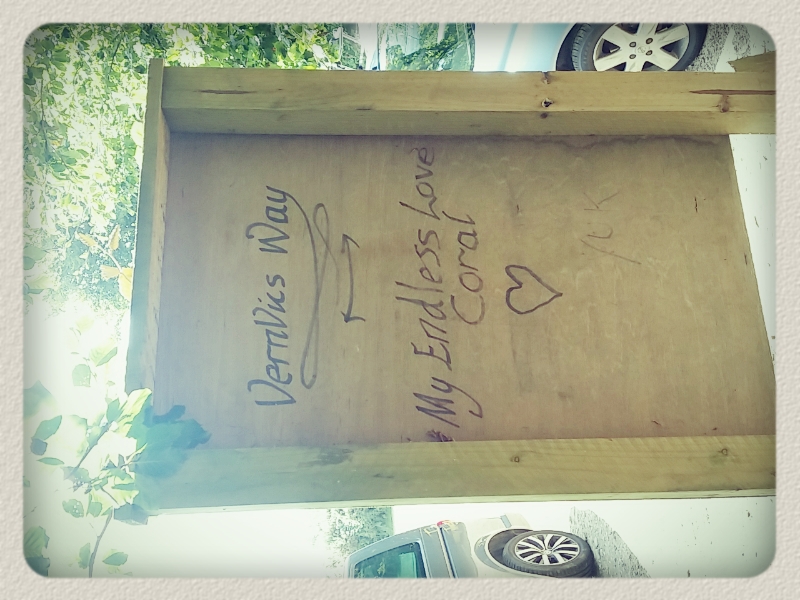 VernVics Way
My Endless Love
Coral
YUK